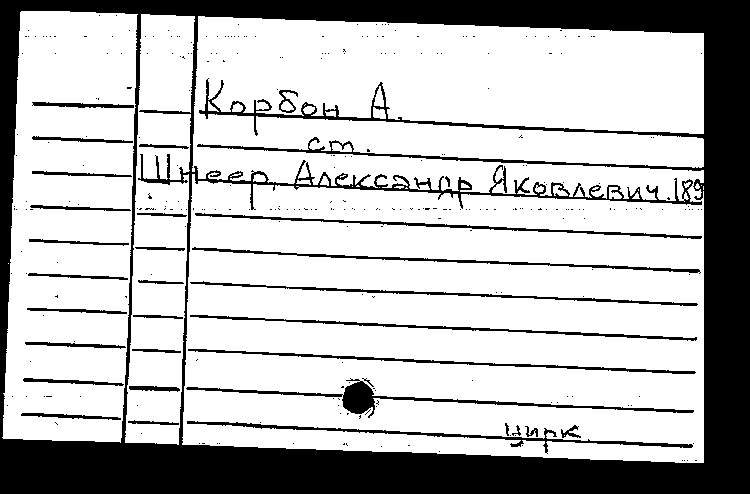 Корбон А.
ст.
Шнеер, Александр Яковлевич. 189
цирк.